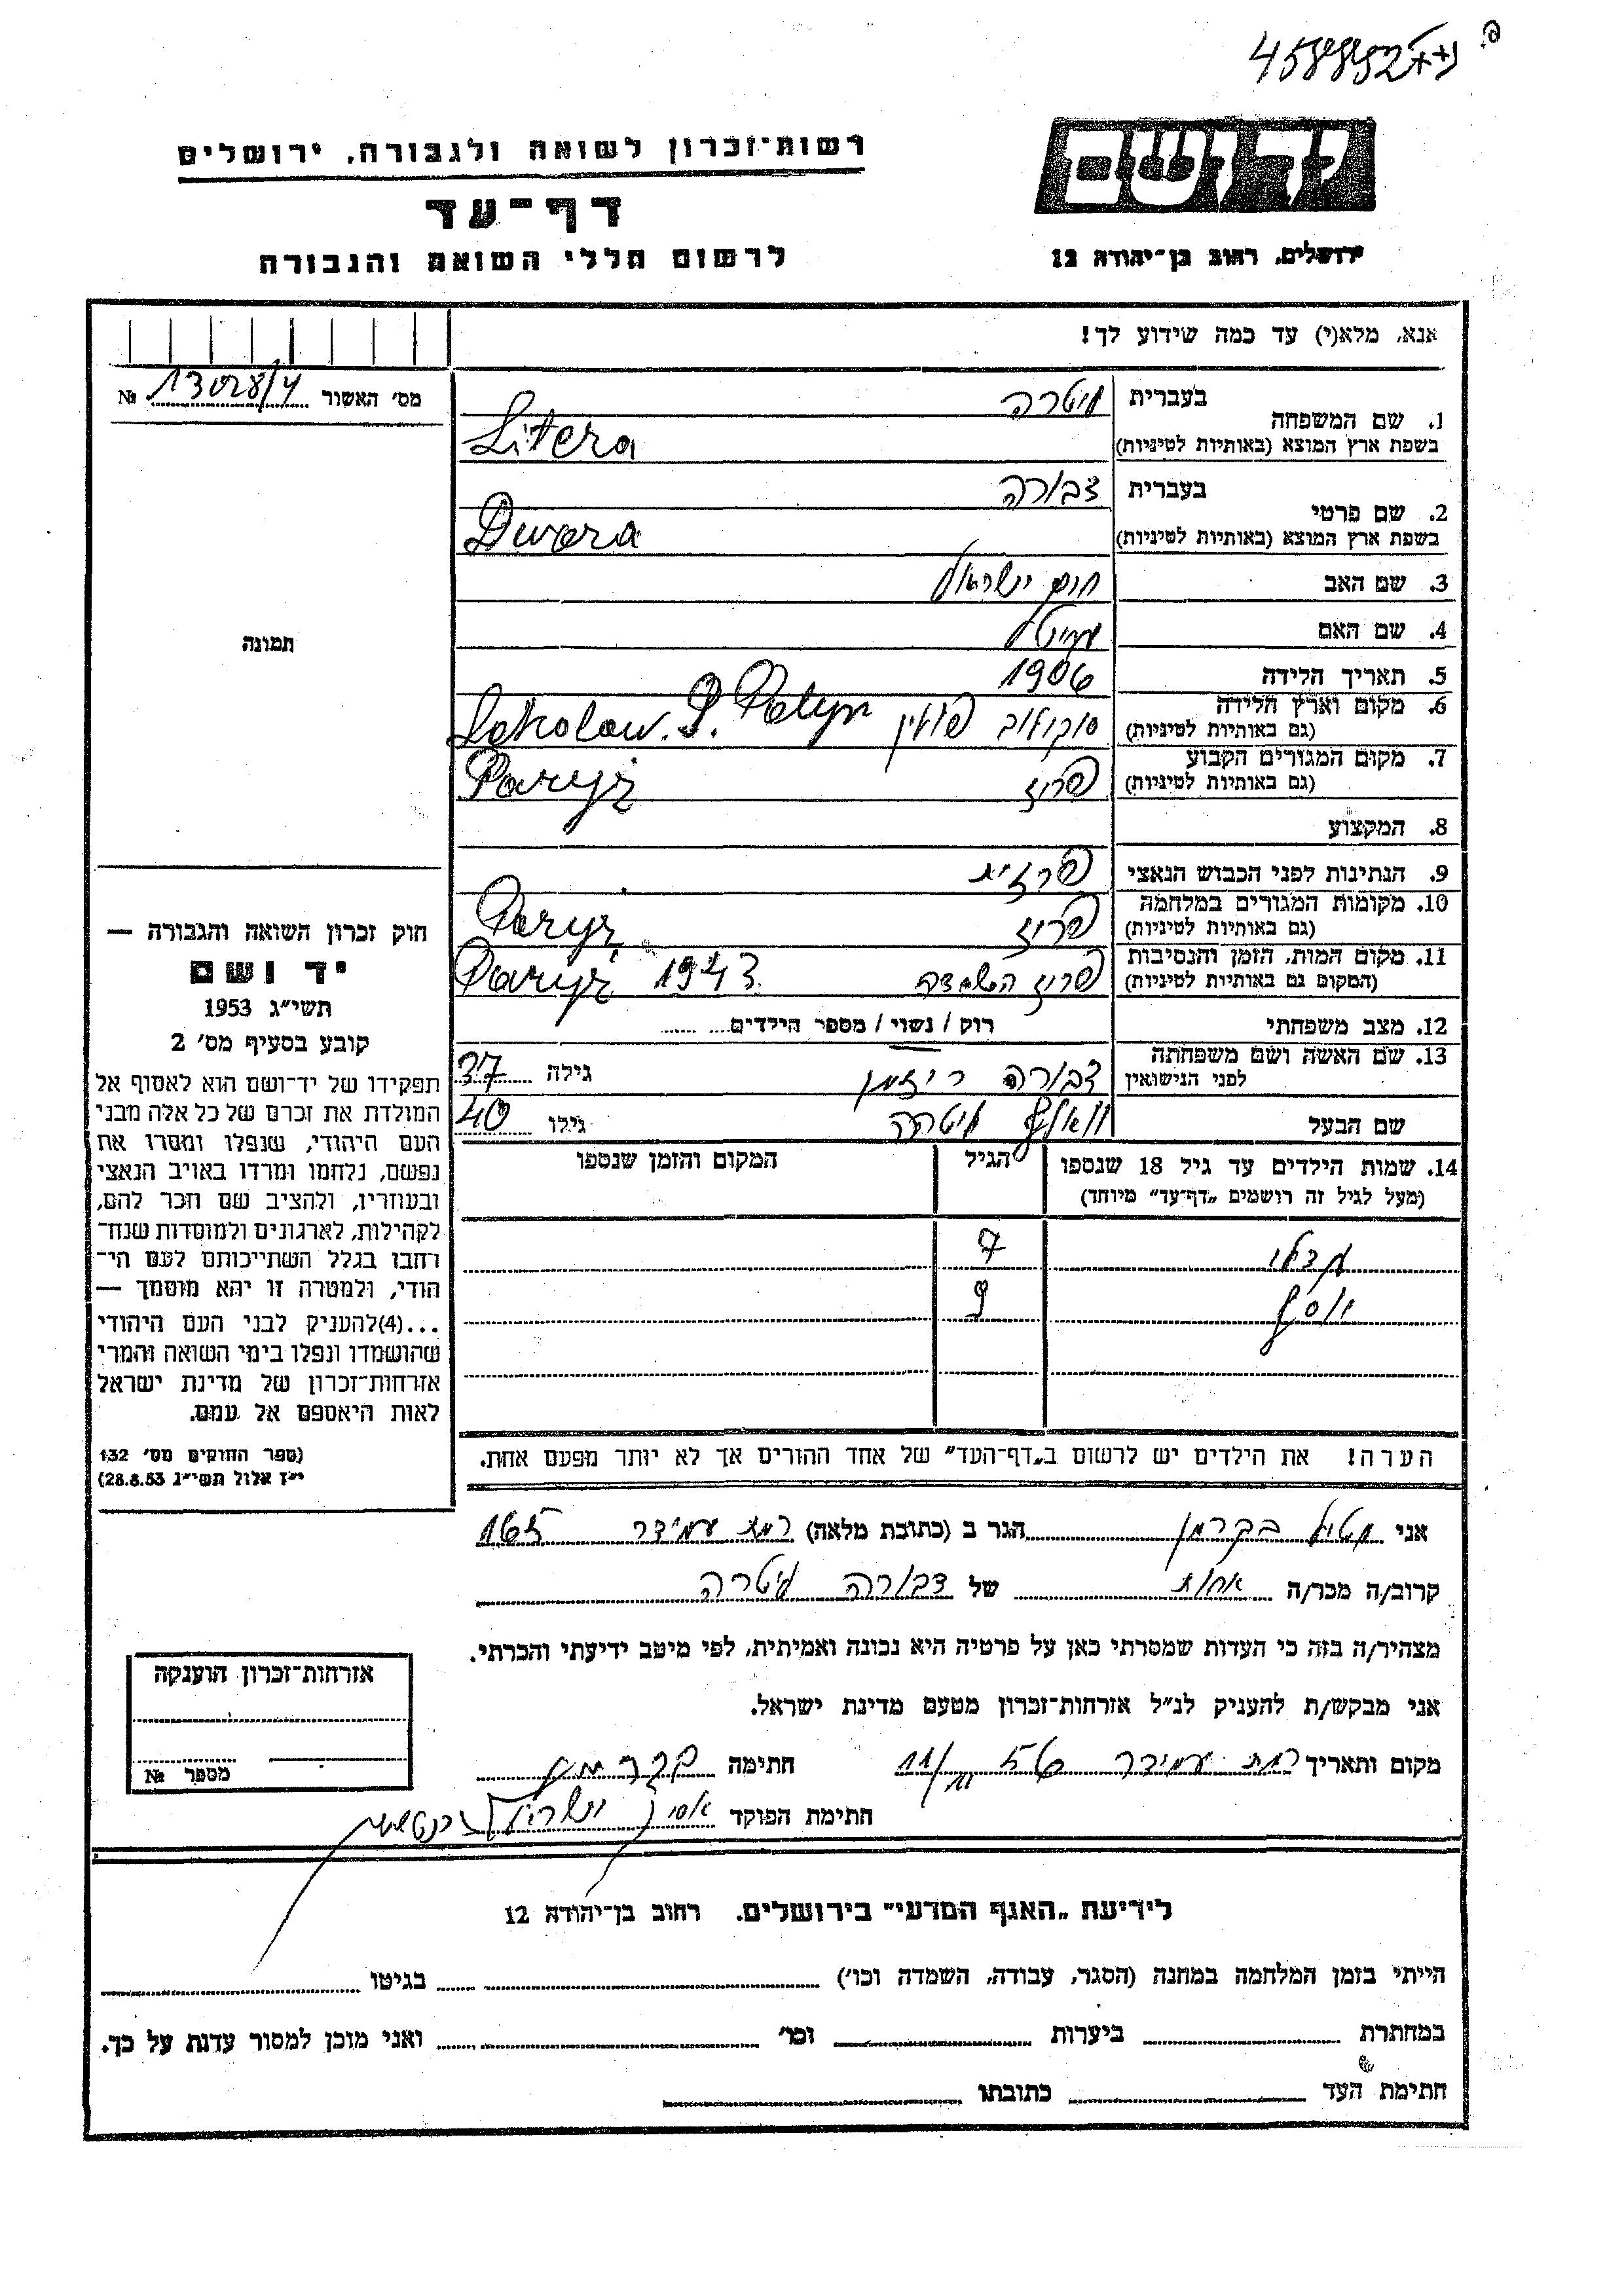 458892
יד ושם
ירושלים, רחוב בן־יהודה 12
רשות־זכרון לשואה ולגבורה, ירושלים
דף־עד
לרשום חללי השואה והגבורה
אנא, מלא(י) עד כמה שידוע לך!
מס׳ האשור № 13028/4
1. שם המשפחה
בעברית ליטרה
בשפת ארץ המוצא (באותיות לטיניות) Litera
2. שם פרטי
בעברית דבורה
בשפת ארץ המוצא (באותיות לטיניות) Dwora
3. שם האב חיים ישראל
4. שם האם
5. תאריך הלידה 1906
6. מקום וארץ הלידה
(גם באותיות לטיניות) סוקולוב פולין Sokolow. P. Polyn
7. מקום המגורים הקבוע
(גם באותיות לטיניות) פריז Paryż
8. המקצוע
9. הנתינות לפני הכבוש הנאצי
10. מקומות המגורים במלחמה
(גם באותיות לטיניות) פריז Paryż
11. מקום המות, הזמן והנסיבות
(המקום גם באותיות לטיניות) פריז השמדה 1943 Paryż
12. מצב משפחתי רוק / נשוי / מספר הילדים
13. שם האשה ושם משפחתה
לפני הנישואין דבורה רייזמן גילה 37
שם הבעל וואלף ליטרה גילו 40
14. שמות הילדים עד גיל 18 שנספו
(מעל לגיל זה רושמים „דף־עד״ מיוחד)
הגיל
המקום והזמן שנספו
7
יוסף 9
הערה! את הילדים יש לרשום ב„דף־העד״ של אחד ההורים אך לא יותר מפעם אחת.
תמונה
חוק זכרון השואה והגבורה —
יד ושם
תשי״ג 1953
קובע בסעיף מס׳ 2
תפקידו של יד־ושם הוא לאסוף אל
המולדת את זכרם של כל אלה מבני
העם היהודי, שנפלו ומסרו את
נפשם, נלחמו ומרדו באויב הנאצי
ובעוזריו, ולהציב שם וזכר להם,
לקהילות, לארגונים ולמוסדות שנח־
רחבו בגלל השתייכותם לעם הי־
הודי, ולמטרה זו יהא מוסמך —
...(4)להעניק לבני העם היהודי
שהושמדו ונפלו בימי השואה והמרי
אזרחות־זכרון של מדינת ישראל
לאות היאספם אל עמם.
(ספר החוקים מס׳ 132
י״ז אלול תשי״ג 28.8.53)
אני בקרמן הגר ב (כתובת מלאה) רמת עמידר 165
קרוב/ה מכר/ה אחות של דבורה ליטרה
מצהיר/ה בזה כי העדות שמסרתי כאן על פרטיה היא נכונה ואמיתית, לפי מיטב ידיעתי והכרתי.
אני מבקש/ת להעניק לנ״ל אזרחות־זכרון מטעם מדינת ישראל.
מקום ותאריך רמת עמידר חתימה בקרמן
חתימת הפוקד
אזרחות־זכרון הוענקה
מספר №
לידיעת „האגף המדעי״ בירושלים. רחוב בן־יהודה 12
הייתי בזמן המלחמה במחנה (הסגר, עבודה, השמדה וכו׳) בגיטו
במחתרת ביערות וכו׳ ואני מוכן למסור עדות על כך.
חתימת העד כתובתו